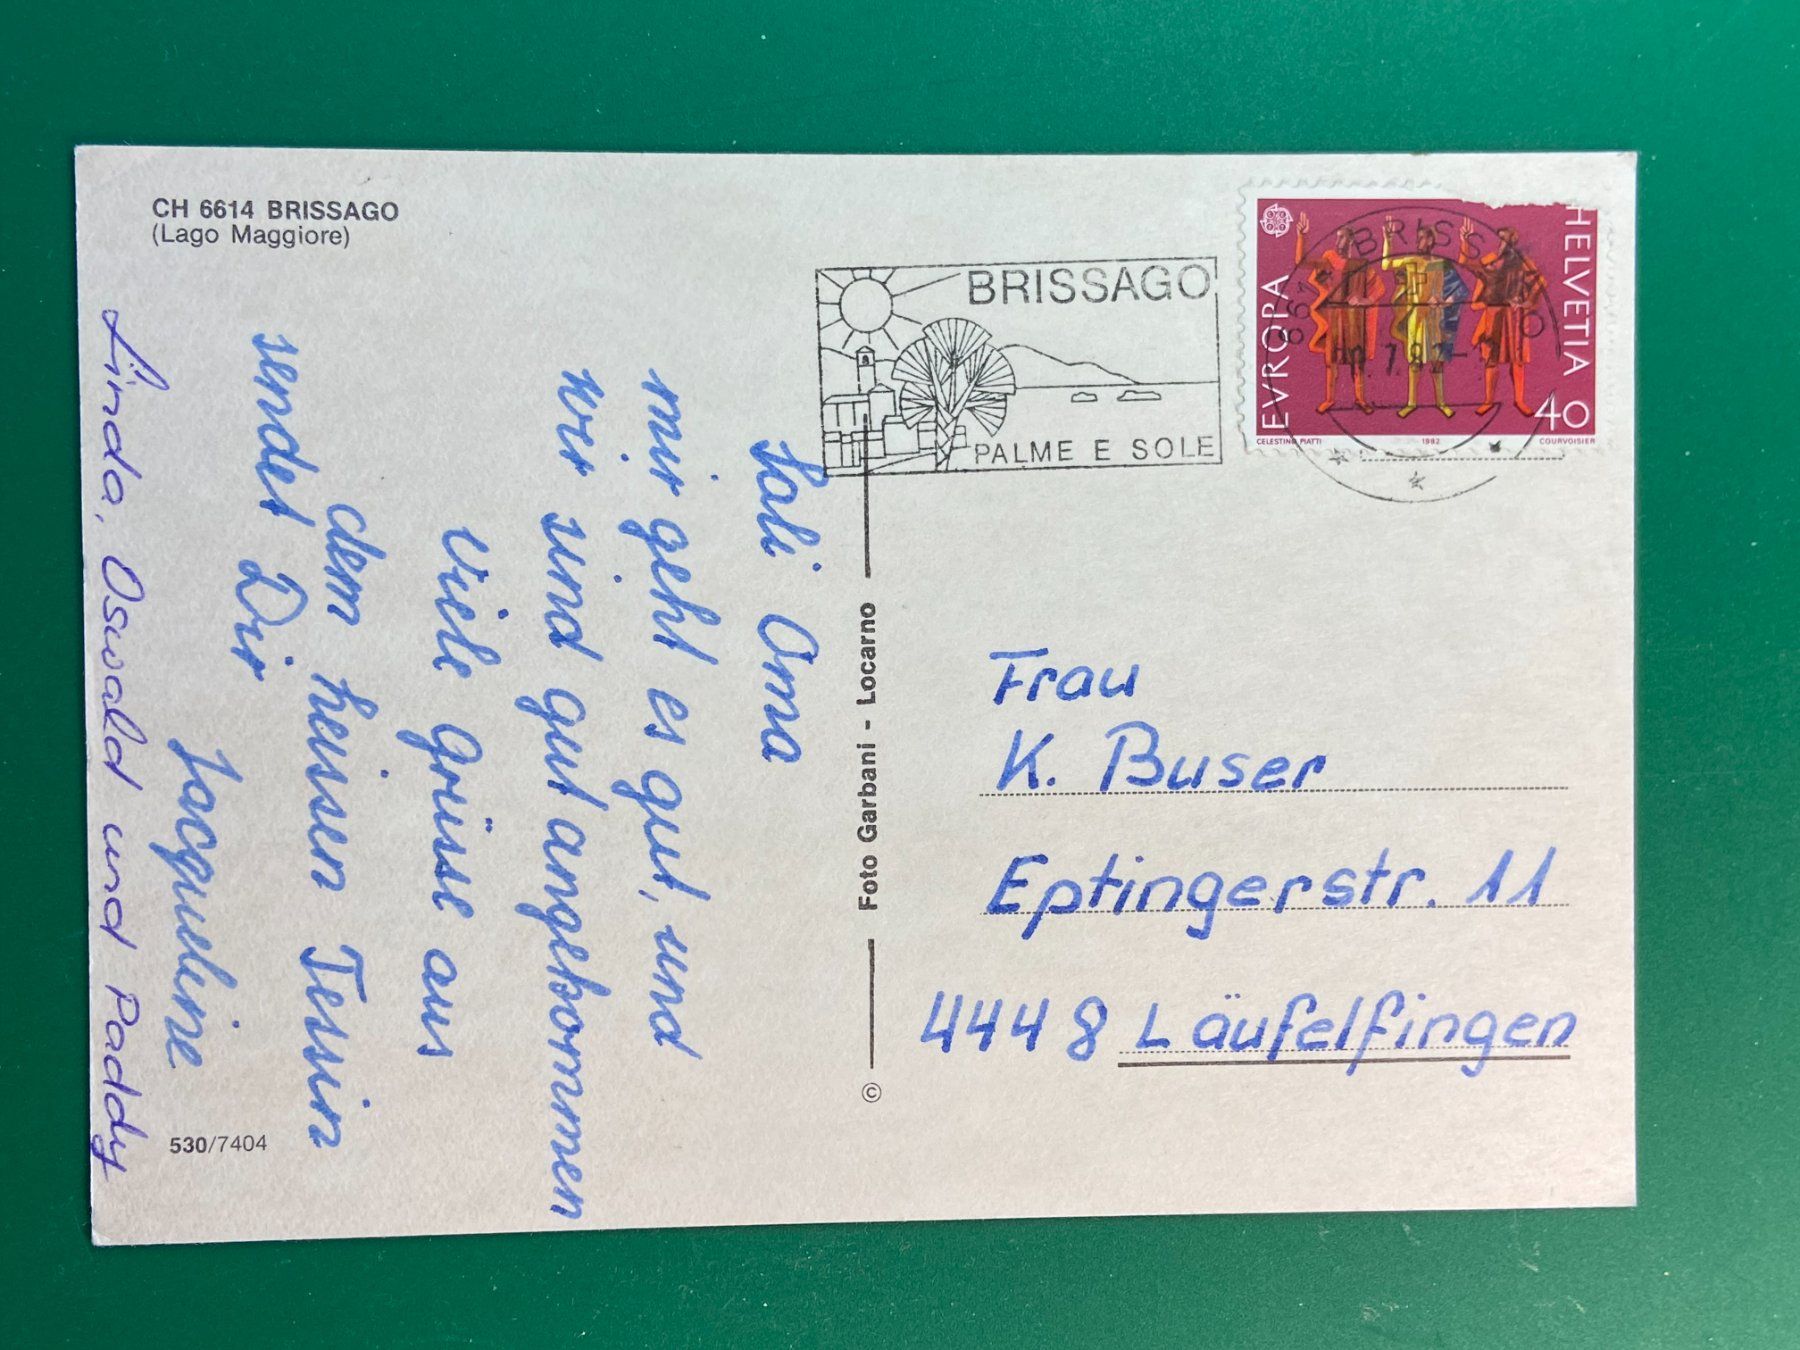 CH 6614 BRISSAGO
(Lago Maggiore)
Sali Oma
mir geht es gut, und
wir sind gut angekommen
Viele Grüsse aus
dem heissen Tessin
sendet Dir
Jacqueline
Linda, Oswald und Paddy
530/7404
Foto Garbani - Locarno
©
BRISSAGO
PALME E SOLE
EVROPA
HELVETIA
40
CELESTINO PIATTI
1982
COURVOISIER
BRISSAGO
Frau
K. Buser
Eptingerstr. 11
4448 Läufelfingen